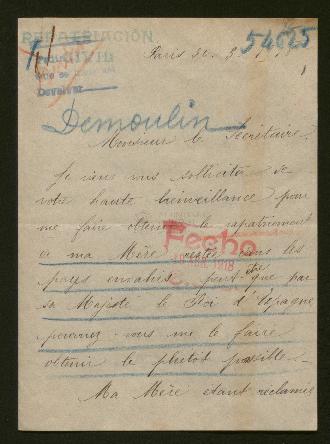 REPATRIACIÓN
54625
Devolver
Paris 3
Demoulin
Monsieur le Secrétaire
Je viens vous solliciter de
votre haute bienveillance pour
me faire obtenir le rapatriement
de ma Mère restée dans les
Fecho
1918
pays envahis peut être que par
sa Majesté le Roi d'Espagne
pourriez-vous me le faire
obtenir le plutôt possible.
Ma Mère étant réclamée